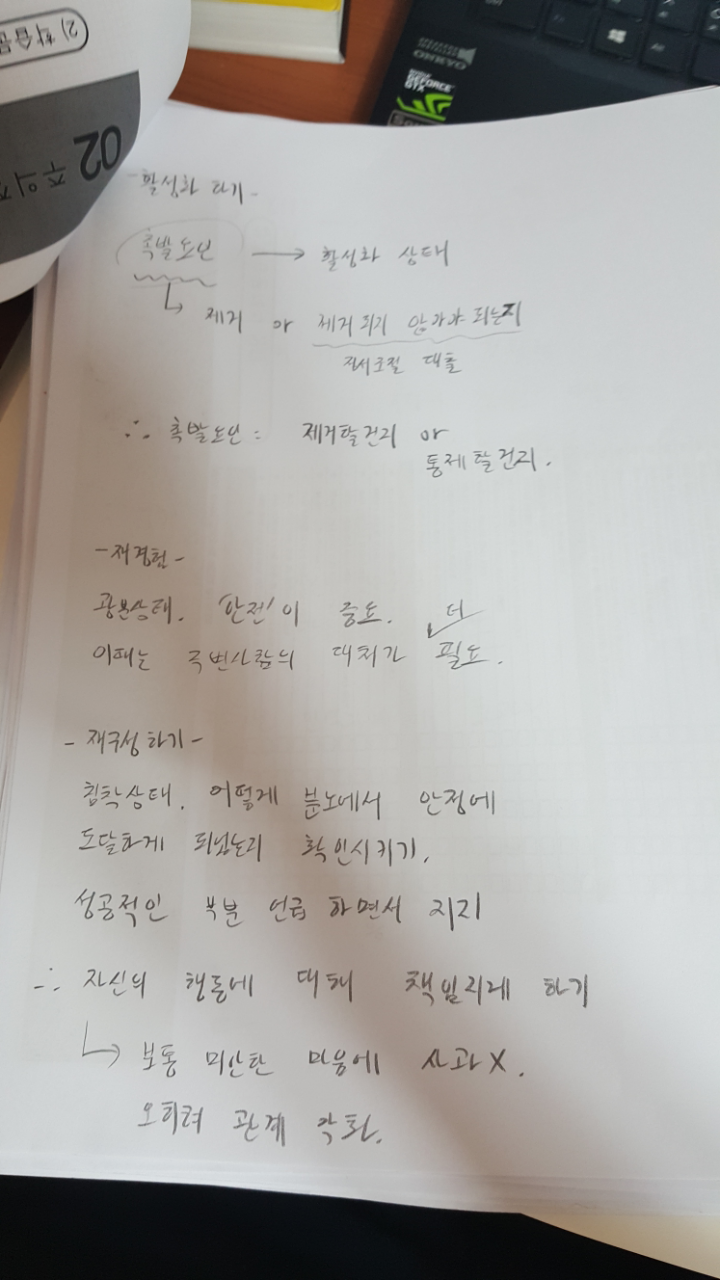 2) 학습문
02 주의
GEFORCE
GTX
ONKYO
- 활성화 되기 -
촉발요인 → 활성화 상태
↳ 제거 or 제거되지 않가가 되는지
질서조절 대출
∴ 촉발요인 : 제거할건지 or
통제할건지.
- 재경험 -
광분상태. '안전'이 중요. 더
이때는 주변사람의 대처가 필요.
- 재구성하기 -
침착상태. 어떻게 분노에서 안정에
도달하게 되었는지 확인시키기.
성공적인 부분 언급하면서 지지
∴ 자신의 행동에 대해 책임지게 하기
↳ 보통 미안한 마음에 사과X.
오히려 관계 악화.